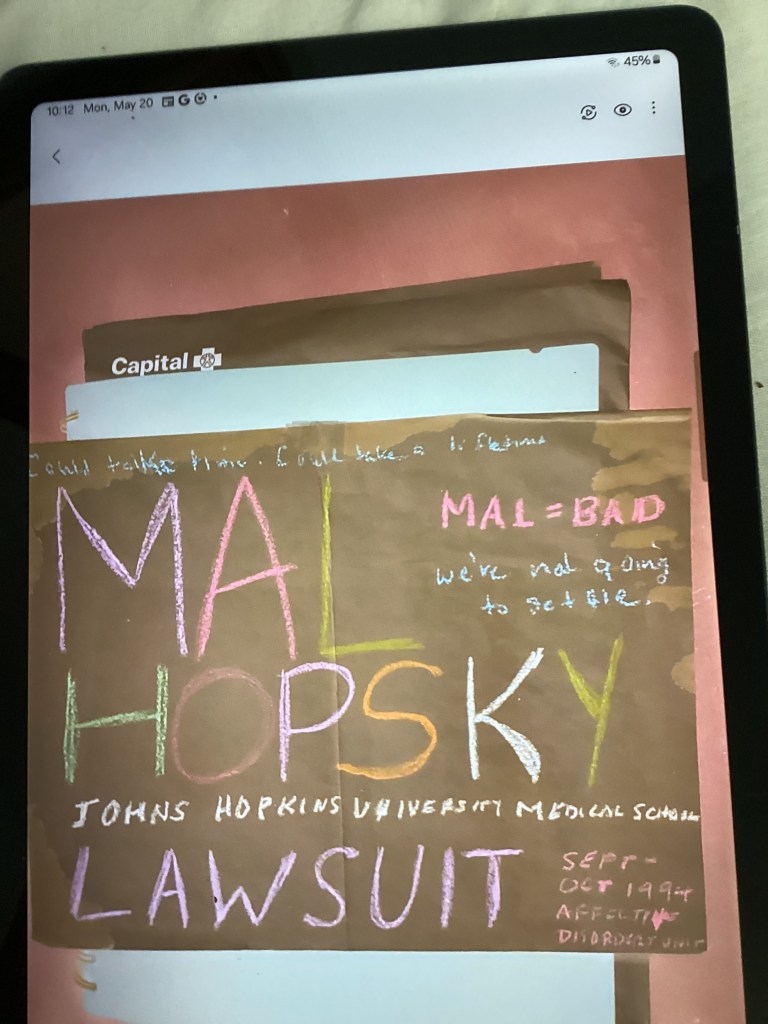 10:12 Mon, May 20
45%
Capital
Could take a lifetime
MAL
MAL = BAD
we've not going
to get
HOPSKY
JOHNS HOPKINS UNIVERSITY MEDICAL SCHOOL
LAWSUIT
SEPT -
OCT 1994
AFFECTIVE
DISORDERS UNIT